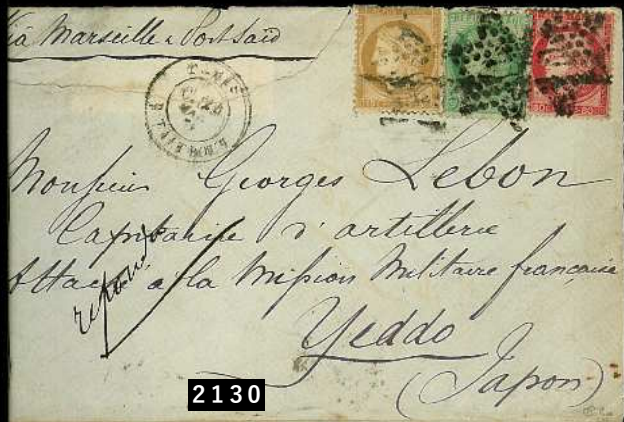 Via Marseille & Port Saïd
Monsieur Georges Lebon
Capitaine d'artillerie
Attaché à la Mission Militaire française
Yeddo
(Japon)
répondu
2130
80 80